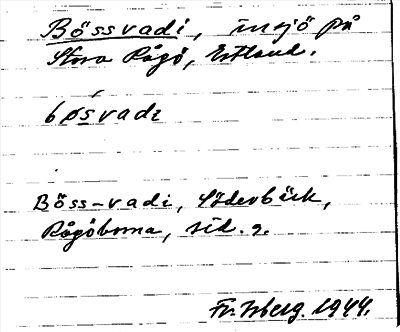 Bössvadi, insjö på
Stora Rågö, Estland.
bøsvadi
Böss-vadi, Söderbäck,
Rågöborna, sid. 9.
Fr. Isberg. 1944.